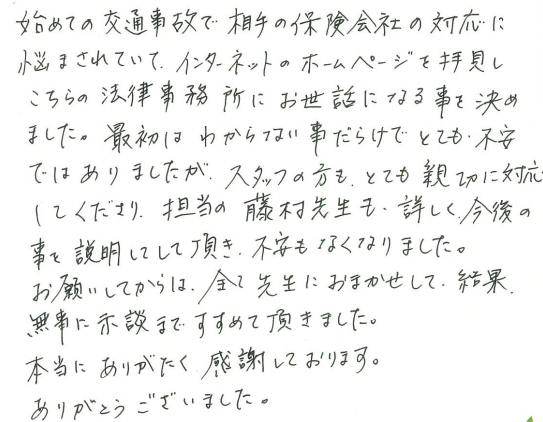 始めての交通事故で相手の保険会社の対応に
悩まされていて、インターネットのホームページを拝見し
こちらの法律事務所にお世話になる事を決め
ました。最初はわからない事だらけでとても不安
ではありましたが、スタッフの方も、とても親切に対応
してくださり、担当の藤村先生も、詳しく、今後の
事を説明してして頂き、不安もなくなりました。
お願いしてからは、全て先生におまかせして、結果、
無事に示談まですすめて頂きました。
本当にありがたく感謝しております。
ありがとうございました。